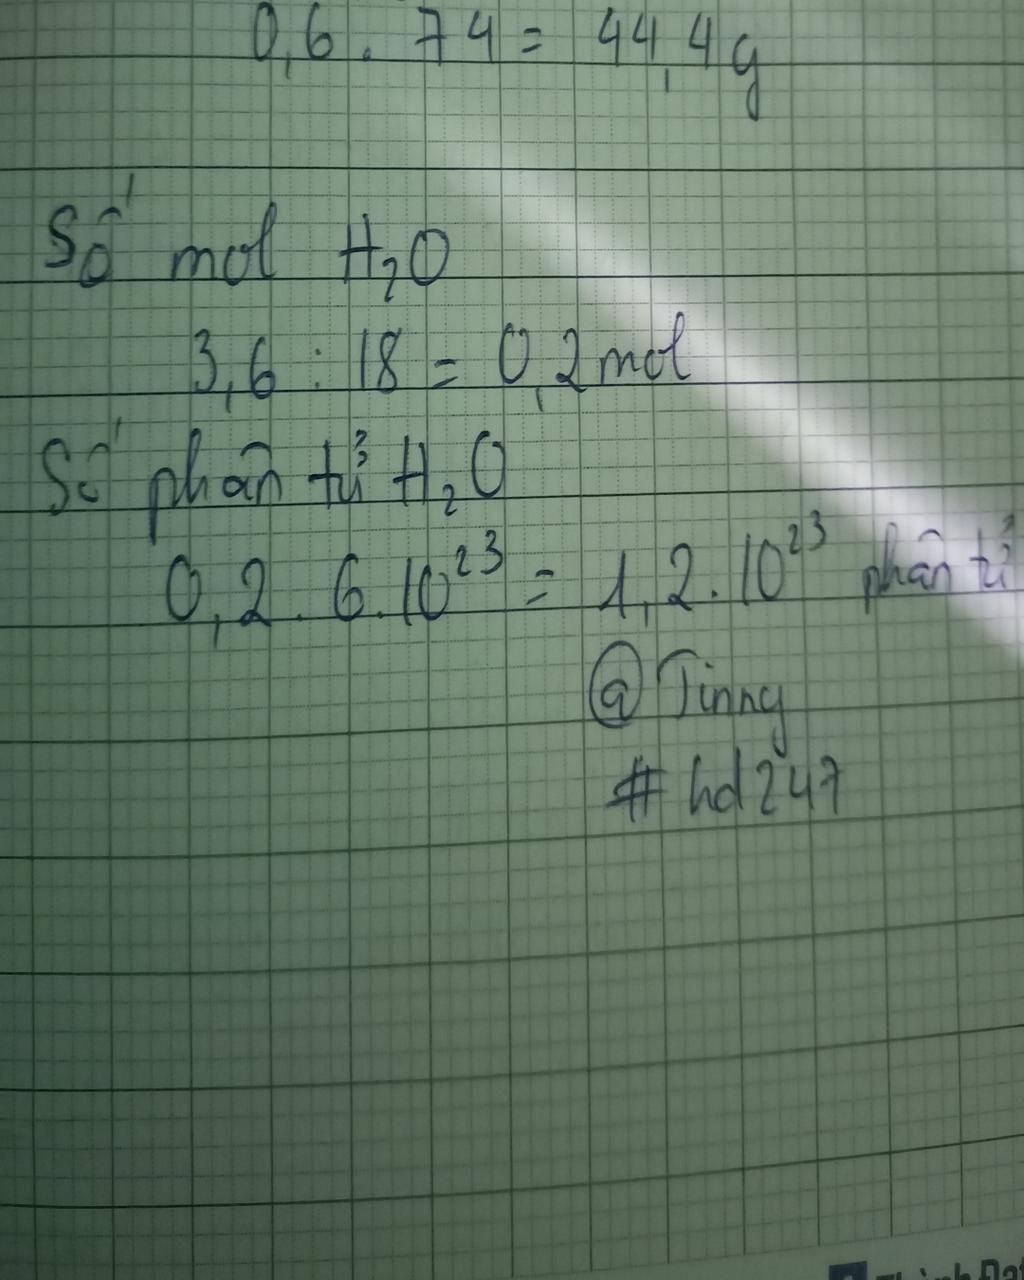 0,6 . 74 = 44,4g
Số mol H₂O
3,6 : 18 = 0,2 mol
Số phân tử H₂O
0,2 . 6.10²³ = 1,2.10²³ phân tử
@Tinny
#hd247